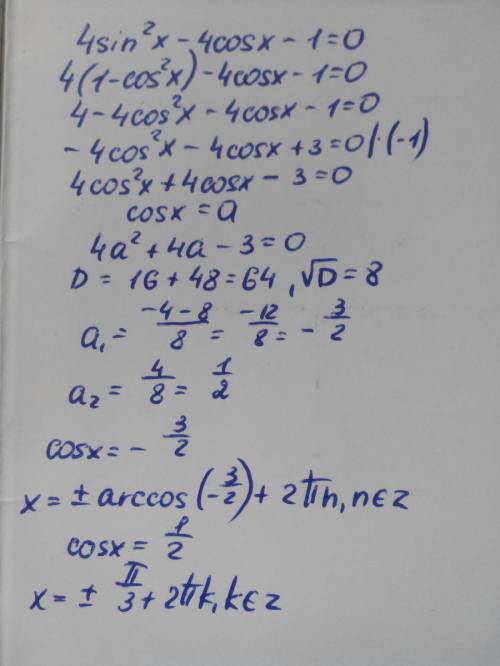 4sin²x - 4cosx - 1 = 0
4(1-cos²x) - 4cosx - 1 = 0
4 - 4cos²x - 4cosx - 1 = 0
- 4cos²x - 4cosx + 3 = 0 |·(-1)
4cos²x + 4cosx - 3 = 0
cosx = a
4a² + 4a - 3 = 0
D = 16 + 48 = 64, √D = 8
a₁ = (-4-8)/8 = -12/8 = -3/2
a₂ = 4/8 = 1/2
cosx = - 3/2
x = ± arccos(-3/2) + 2πn, n∈z
cosx = 1/2
x = ± π/3 + 2πk, k∈z